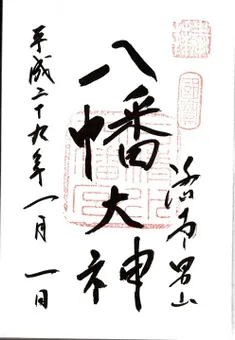 洛南男山
八幡大神
平成二十九年一月一日